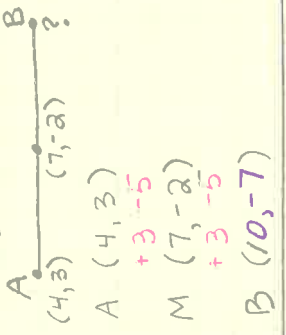 A B
(4,3) (7,-2) ?
A (4,3)
+3 -5
M (7,-2)
+3 -5
B (10,-7)